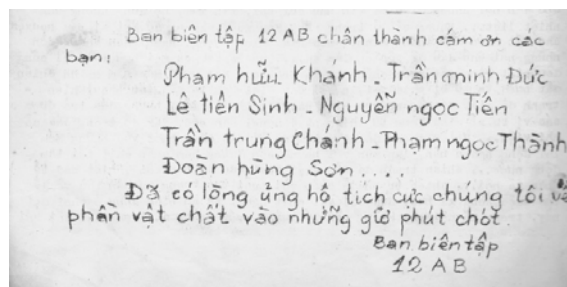 Ban biên tập 12 AB chân thành cám ơn các
bạn:
Phạm hữu Khánh - Trần minh Đức
Lê tiên Sinh - Nguyễn ngọc Tiến
Trần trung Chánh - Phạm ngọc Thành
Đoàn hùng Sơn....
Đã có lòng ủng hộ, tích cực chúng tôi về
phần vật chất vào những giờ phút chót.
Ban biên tập
12 A B